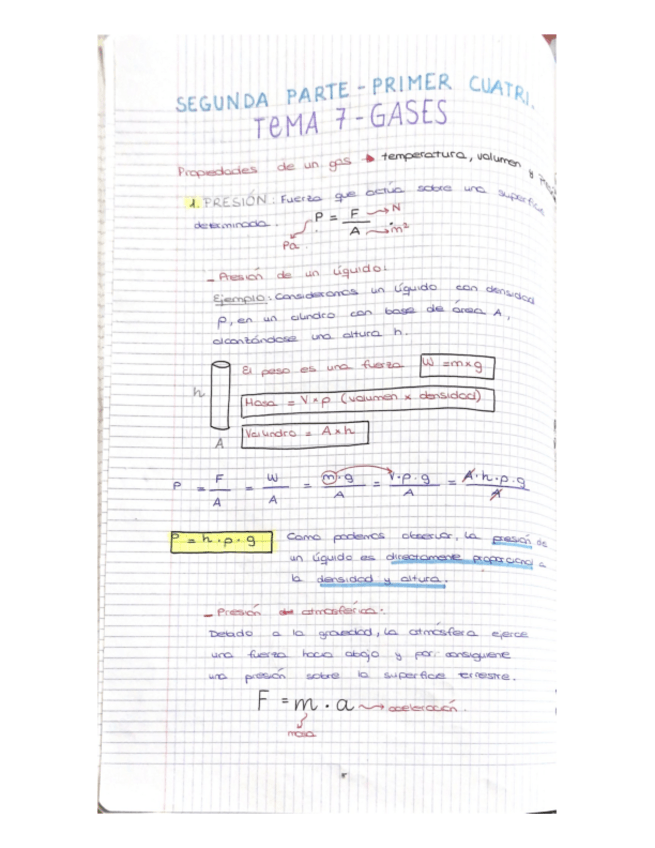 SEGUNDA PARTE - PRIMER CUATRI.
TEMA 7 - GASES
Propiedades de un gas → temperatura, volumen y
1. PRESIÓN: Fuerza que actúa sobre una superficie
determinada. P = F/A → N → m²
Pa.
- Presión de un líquido:
Ejemplo: Consideramos un líquido con densidad
ρ, en un cilindro con base de área A,
alcanzándose una altura h.
El peso es una fuerza W = m×g
h
Masa = V×ρ (volumen × densidad)
Vcilindro = A×h
A
P = F/A = W/A = m·g/A = V·ρ·g/A = A·h·ρ·g/A
P = h·ρ·g Como podemos observar, la presión de
un líquido es directamente proporcional a
la densidad y altura.
- Presión atmosférica.
Debido a la gravedad, la atmósfera ejerce
una fuerza hacia abajo y por consiguiene
una presión sobre la superficie terrestre.
F = m · a → aceleración.
masa